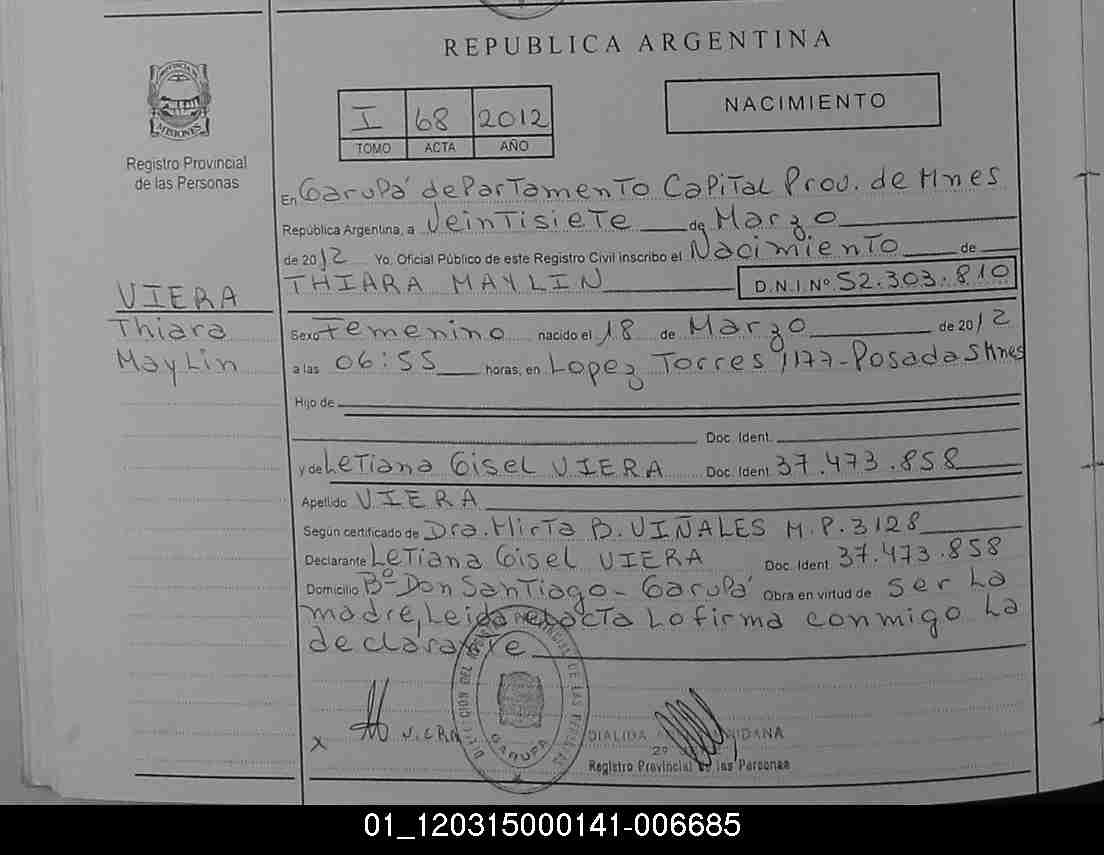 REPUBLICA ARGENTINA
PROVINCIA DE
MISIONES
Registro Provincial
de las Personas
I 68 2012
TOMO ACTA AÑO
NACIMIENTO
En Garupá departamento Capital Prov. de Mnes
República Argentina, a Veintisiete de Marzo
de 2012 Yo, Oficial Público de este Registro Civil inscribo el Nacimiento de
THIARA MAYLIN D.N.I. Nº 52.303.810
VIERA
Thiara
Maylin
Sexo Femenino nacido el 18 de Marzo de 2012
a las 06:55 horas, en Lopez Torres 1177-Posadas Mnes
Hijo de
Doc. Ident.
y de Letiana Gisel VIERA Doc. Ident. 37.473.858
Apellido VIERA
Según certificado de Dra. Mirta B. VIÑALES M.P. 3128
Declarante Letiana Gisel VIERA Doc. Ident. 37.473.858
Domicilio Bº Don Santiago- Garupá Obra en virtud de ser la
madre, Leida el acta Lo firma conmigo La
declarante
x VIERA
GARUPA
Registro Provincial de las Personas
01_120315000141-006685